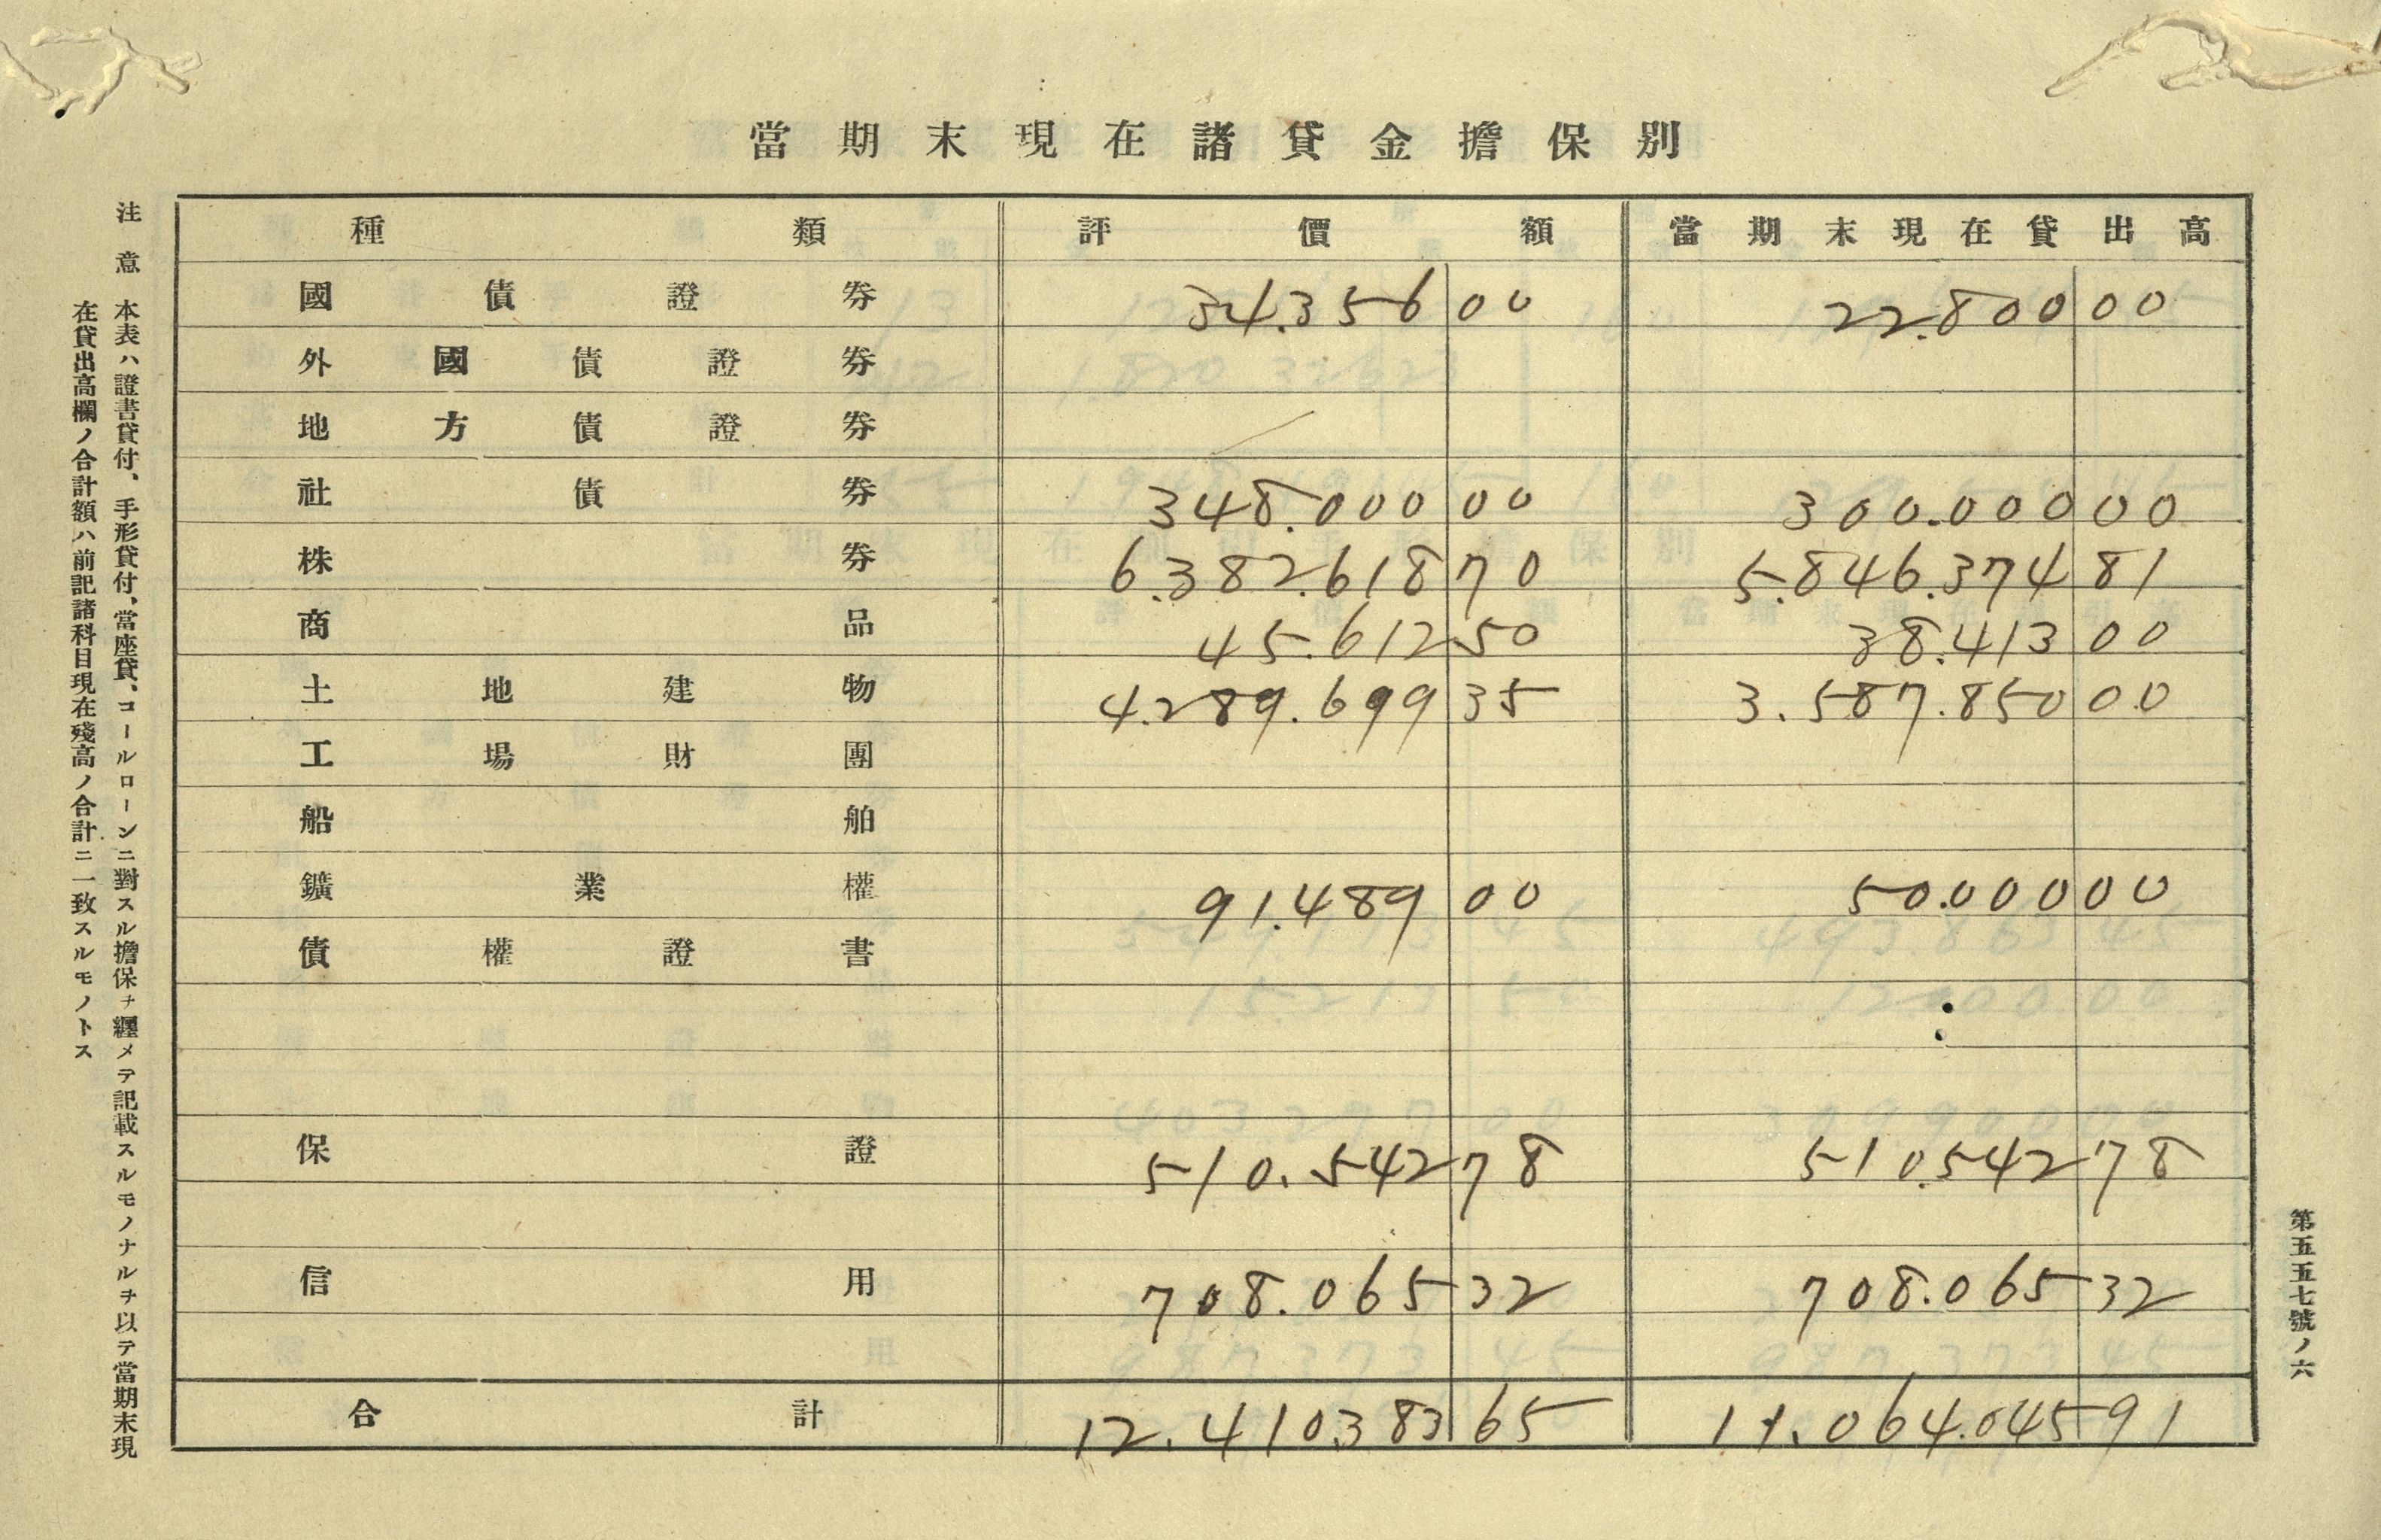 當期末現在諸貸金擔保別
種類 評價額 當期末現在貸出高
國債證券 34.356 00 22.800 00
外國債證券
地方債證券
社債券 348.000 00 300.000 00
株券 6.382.618 70 5.846.374 81
商品 45.612 50 38.413 00
土地建物 4.289.699 35 3.587.850 00
工場財團
船舶
鑛業權 91.489 00 50.000 00
債權證書
保證 510.542 78 510.542 78
信用 708.065 32 708.065 32
合計 12.410383 65 11.064.045 91
第五五七號ノ六
注意 本表ハ證書貸付、手形貸付、當座貸、コールローンニ對スル擔保ヲ纒メテ記載スルモノナルヲ以テ當期末現
在貸出高欄ノ合計額ハ前記諸科目現在殘高ノ合計ニ一致スルモノトス